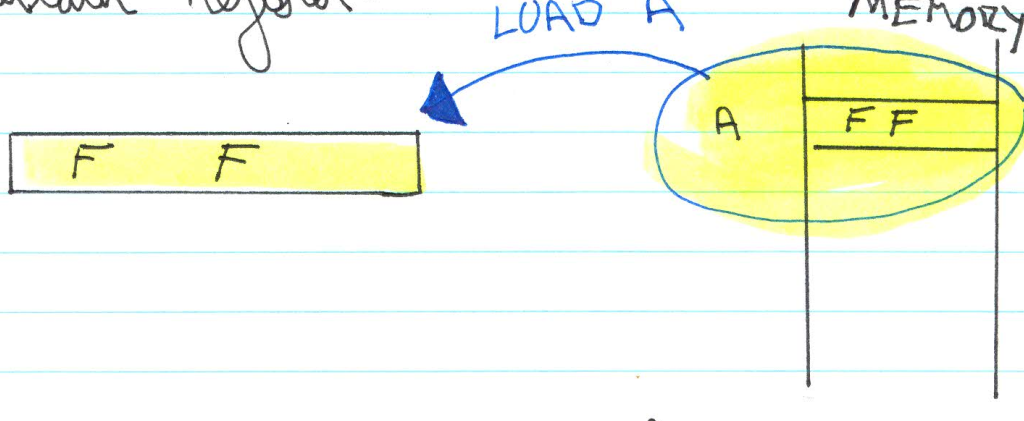 Register
LOAD A
MEMORY
F F
A
F F